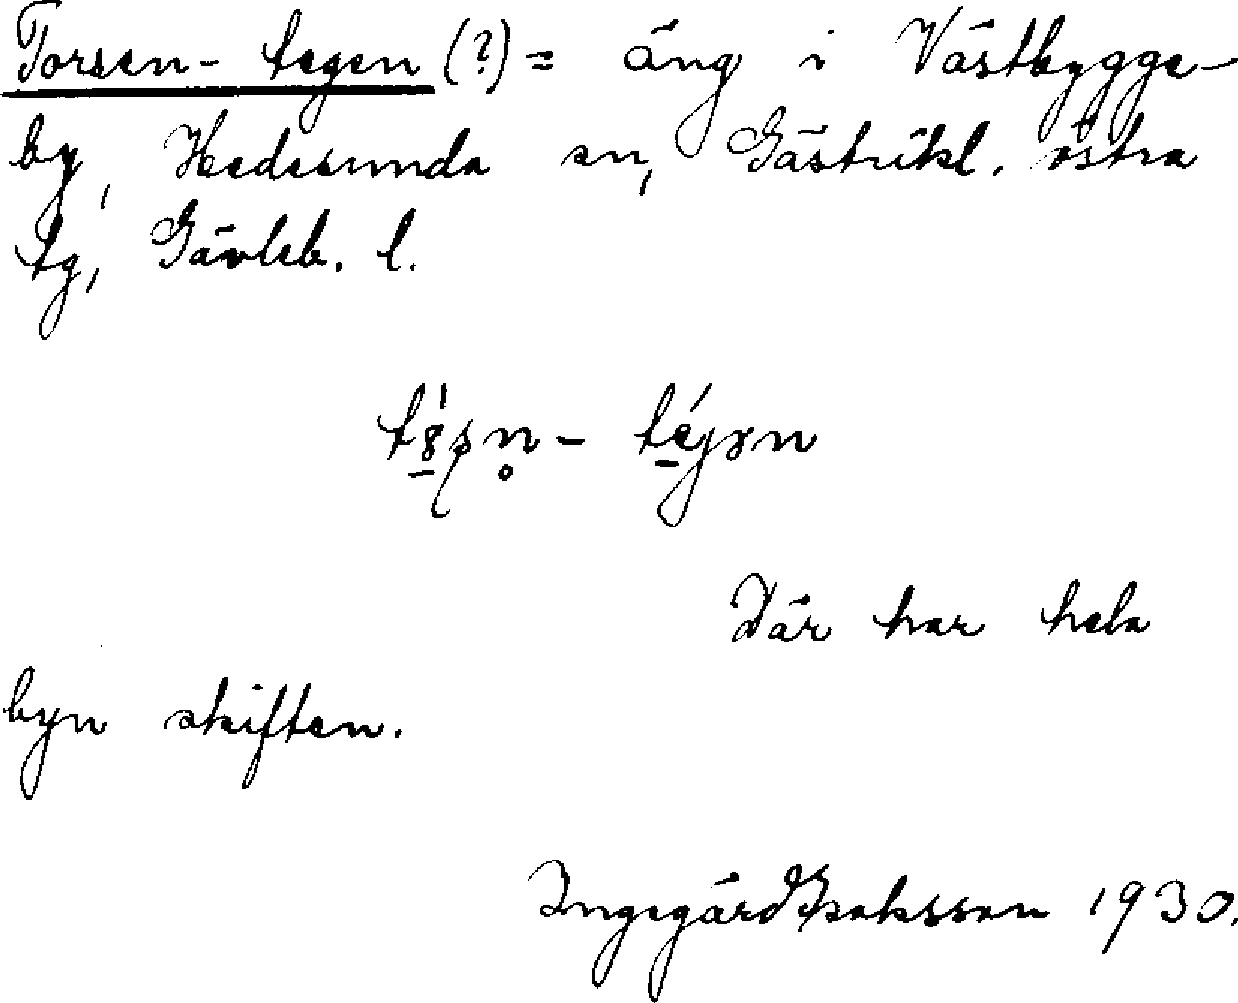 Torsen-tegen (?) = äng i Västbygge-
by, Hedesunda sn, Gästrikl. östra
tg, Gävleb. l.
Där har hela
byn skiften.
Ingegärd Isaksson 1930.